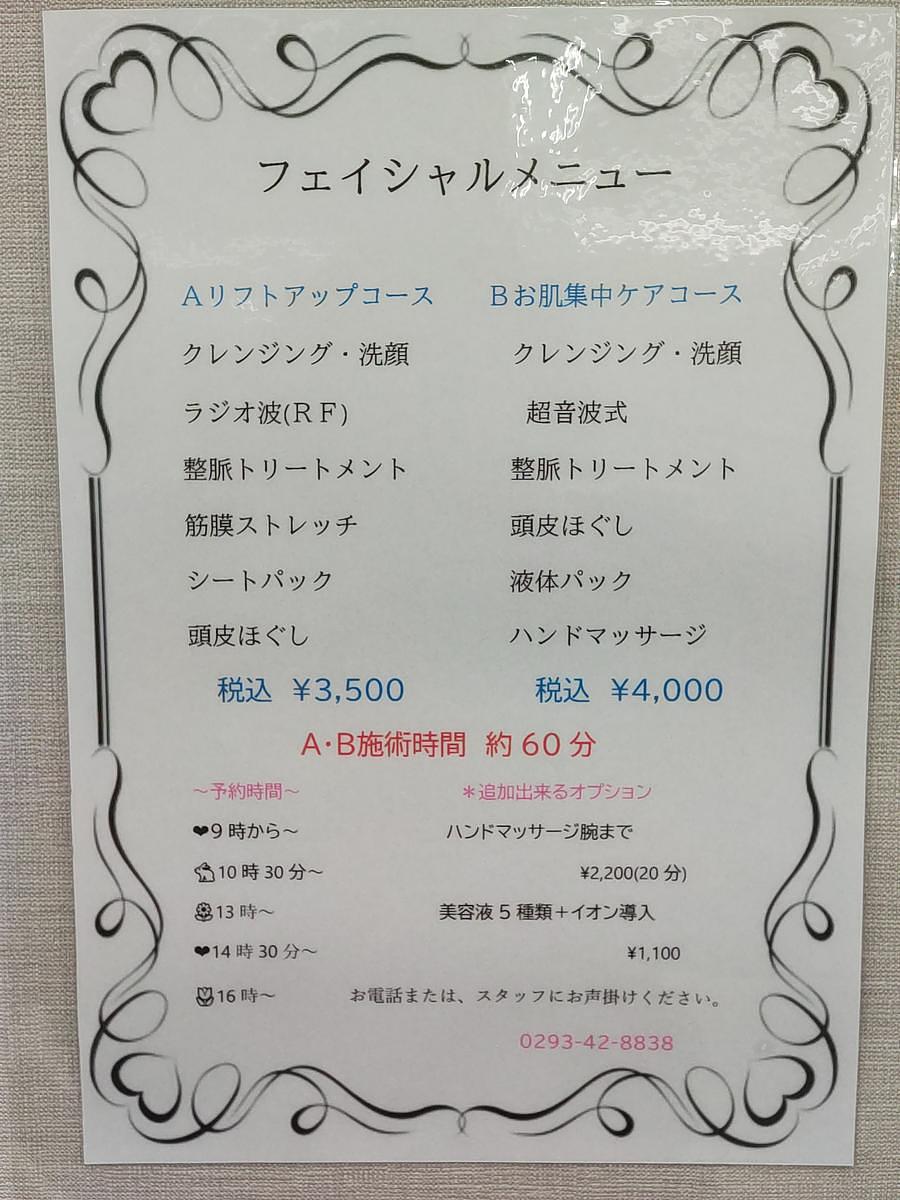 フェイシャルメニュー
Aリフトアップコース Bお肌集中ケアコース
クレンジング・洗顔 クレンジング・洗顔
ラジオ波(RF) 超音波式
整脈トリートメント 整脈トリートメント
筋膜ストレッチ 頭皮ほぐし
シートパック 液体パック
頭皮ほぐし ハンドマッサージ
税込 ¥3,500 税込 ¥4,000
A・B施術時間 約60分
～予約時間～ *追加出来るオプション
❤9時から～ ハンドマッサージ腕まで
10時30分～ ¥2,200(20分)
13時～ 美容液5種類+イオン導入
❤14時30分～ ¥1,100
16時～ お電話または、スタッフにお声掛けください。
0293-42-8838